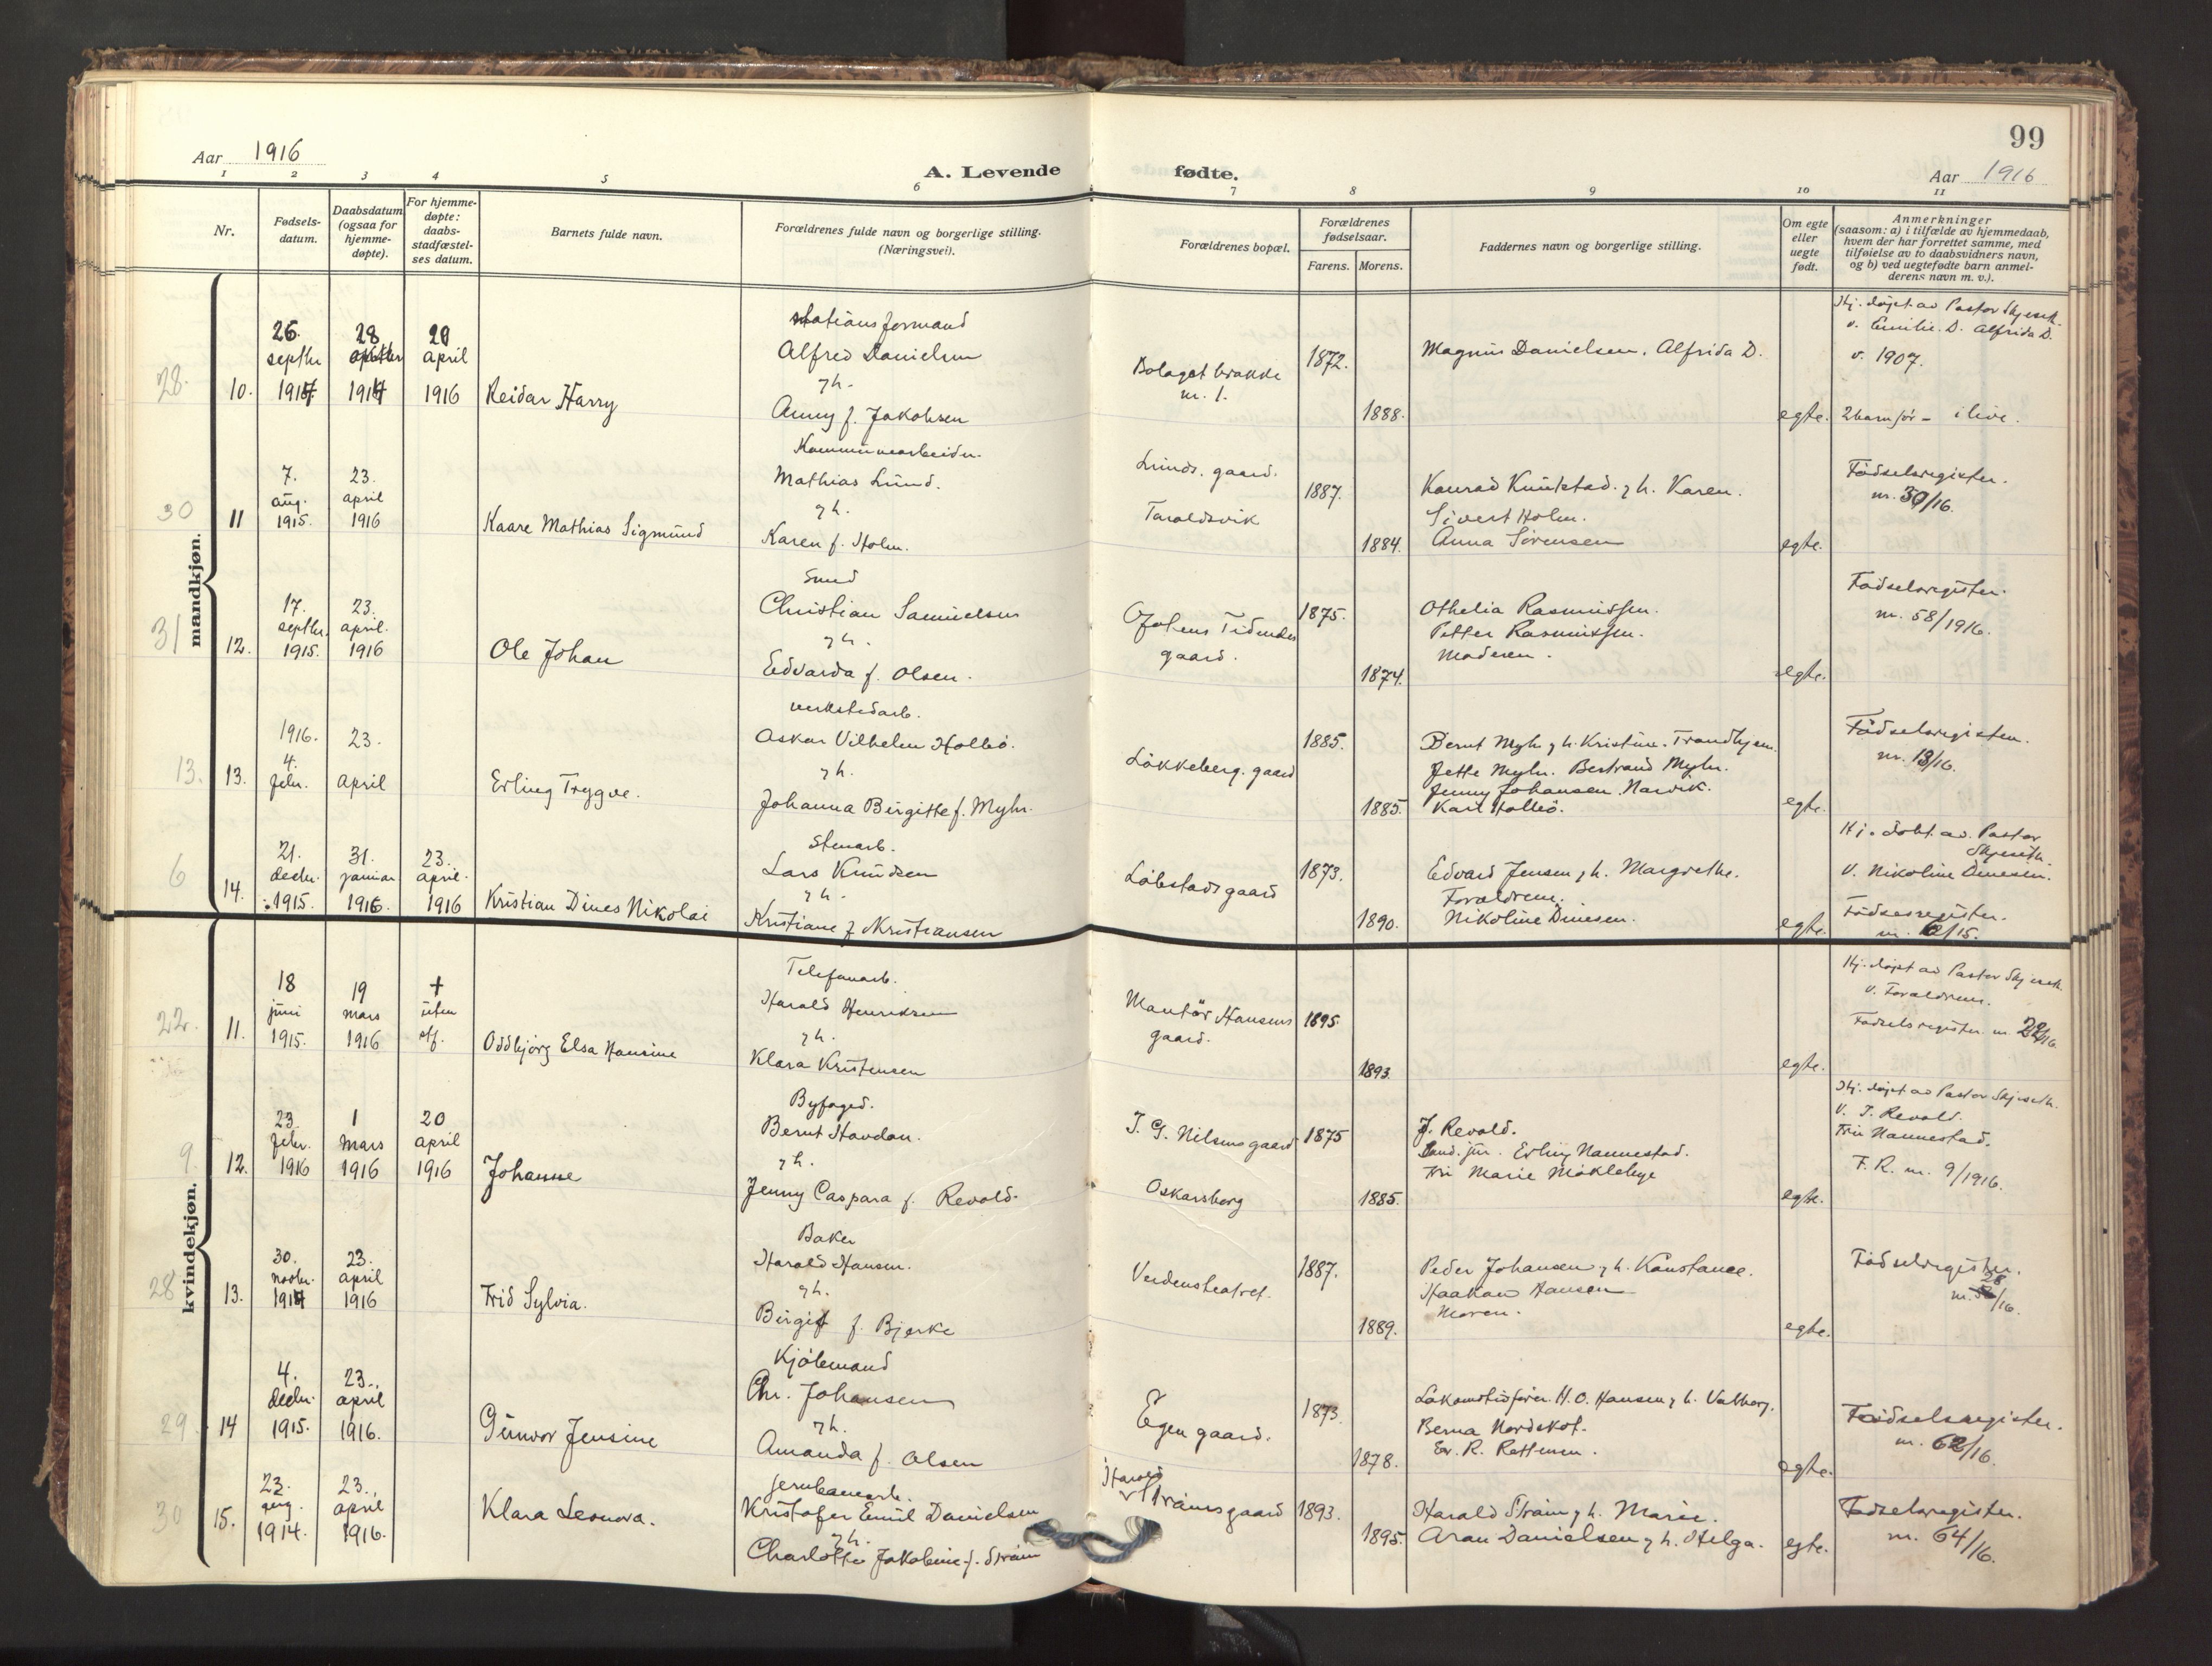 99
Aar 1916
A. Levende fødte.
Aar 1916
1 2 3 4 5 6 7 8 9 10 11
Nr.
Fødsels-
datum.
Daabsdatum
(ogsaa for
hjemme-
døpte).
For hjemme-
døpte:
daabs-
stadfæstel-
ses datum.
Barnets fulde navn.
Forældrenes fulde navn og borgerlige stilling.
(Næringsvei).
Forældrenes bopæl.
Forældrenes
fødselsaar.
Farens. Morens.
Faddernes navn og borgerlige stilling.
Om egte
eller
uegte
født.
Anmerkninger
(saasom: a) i tilfælde av hjemmedaab,
hvem der har forrettet samme, med
tilføielse av to daabsvidners navn,
og b) ved uegtefødte barn anmel-
derens navn m. v.).
mandkjøn.
28.
10.
26.
septbr
1914
28
1914
20
april
1916
Reidar Harry
stationsformand
Alfred Danielsen
g h.
Anny f. Jakobsen
Bolaget brakke
nr. 1.
1872.
1888.
Magnus Danielsen. Alfrida D.
egte.
Hj. døpt av Pastor Skjeseth.
v. Emilie. D. Alfrida D.
v. 1907.
2 barn før - i live.
30
11
7.
aug.
1915.
23.
april
1916
Kaare Mathias Sigmund
Kommunearbeider.
Mathias Lund.
g h.
Karen f. Holm.
Lunds. gaard.
Taraldsvik
1887.
1884.
Konrad Knutstad. g h. Karen.
Sivert Holm.
Anna Sørensen
egte.
Fødselsregister.
nr. 30/16.
31
12.
17.
septbr.
1915.
23.
april.
1916
Ole Johan
Smed
Christian Samuelsen
g h.
Edvarda f. Olsen.
Ofotens Tidendes
gaard.
1875.
1874.
Othelia Rasmussen.
Petter Rasmussen.
Moderen.
egte.
Fødselsregister.
nr. 58/1916.
13.
13.
1916.
4.
febr.
23.
april
Erling Trygve.
verkstedarb.
Oskar Vilhelm Holbø.
g h.
Johanna Birgitte f. Myhr.
Løkkeberg. gaard
1885.
1885.
Bernt Myhr g h. Kristine. Trondhjem.
Jette Myhr. Bertrand Myhr.
Jenny Johansen. Narvik.
Karl Holbø.
egte.
Fødselsregister.
nr. 13/16.
6
14.
21.
decbr.
1915.
31.
januar
1916.
23.
april.
1916
Kristian Dines Nikolai
Stenarb.
Lars Knudsen
g h.
Kristiane f. Kristiansen
Løbstads gaard
1873.
1890.
Edvard Jensen g h. Margrethe.
Forældrene.
Nikoline Dinesen.
egte.
Hj. døbt. av. Pastor
Skjeseth.
v. Nikoline Dinesen.
Fødselsregister.
kvindekjøn.
22.
11.
18
juni
1915.
19
mars
1916
+
uten
stf.
Oddbjørg Elsa Hansine
Telefonarb.
Harald Henriksen
g h.
Klara Kristensen
Mantør Hansens
gaard.
1895.
1893.
egte.
Hj. døpt av Pastor Skjeseth.
v. Forældrene.
Fødselsregister nr. 22/16.
9.
12.
23.
febr.
1916
1
mars
1916
20
april
1916
Johanne
Byfoged.
Bernt Havdan.
g h.
Jenny Caspara f. Revold.
J. G. Nilsens gaard
Oskarsborg
1875
1885.
J. Revold.
Cand. jur. Erling Nannestad.
Fru Marie Møklebye
egte.
Hj. døpt av Pastor Skjeseth.
v. J. Revold.
Fru Nannestad.
F. R. nr. 9/1916.
28
13.
30.
novbr.
1914
23.
april
1916
Frid Sylvia.
Baker
Harald Hansen.
g h.
Birgit f. Bjerke
Verdensteatret.
1887.
1889.
Peder Johansen g h. Konstance.
Haakon Hansen
Moren.
egte.
Fødselsregister.
nr. 28/16.
29
14
4.
decbr.
1915.
23.
april
1916.
Gunvor Jensine
Kjølemand
Chr. Johansen
g h.
Amanda f. Olsen
Egen gaard.
1873.
1878.
Lokomotivfører H. O. Hansen g h. Valborg.
Berna Nordskot.
Er. R. Rettmen.
egte.
Fødselsregister.
nr. 62/16.
30
15.
23.
aug.
1914.
23.
april
1916.
Klara Leonora.
Jernbanearb.
Kristofer Emil Danielsen
g h.
Charlotte Jakobine f. Strøm
Harald
Strøms gaard
1893.
1895.
Harald Strøm g h. Marie.
Aron Danielsen g h. Helga.
egte.
Fødselsregister.
nr. 64/16.